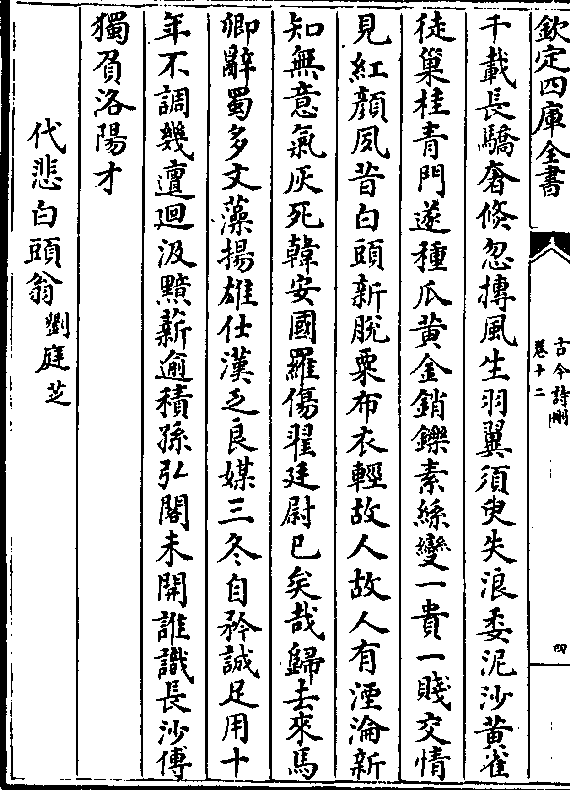 欽定四庫全書
古今詩刪
卷十二
四
千載長驕奢倐忽摶風生羽翼須臾失浪委泥沙黄雀
徒巢桂青門遂種瓜黄金銷鑠素絲變一貴一賤交情
見紅顔夙昔白頭新脫粟布衣輕故人故人有湮淪新
知無意氣灰死韓安國羅傷翟廷尉已矣哉歸去來馬
卿辭蜀多文藻揚雄仕漢乏良媒三冬自矜誠足用十
年不調幾邅迴汲黯薪逾積孫弘閣未開誰識長沙傅
獨負洛陽才
代悲白頭翁劉庭芝